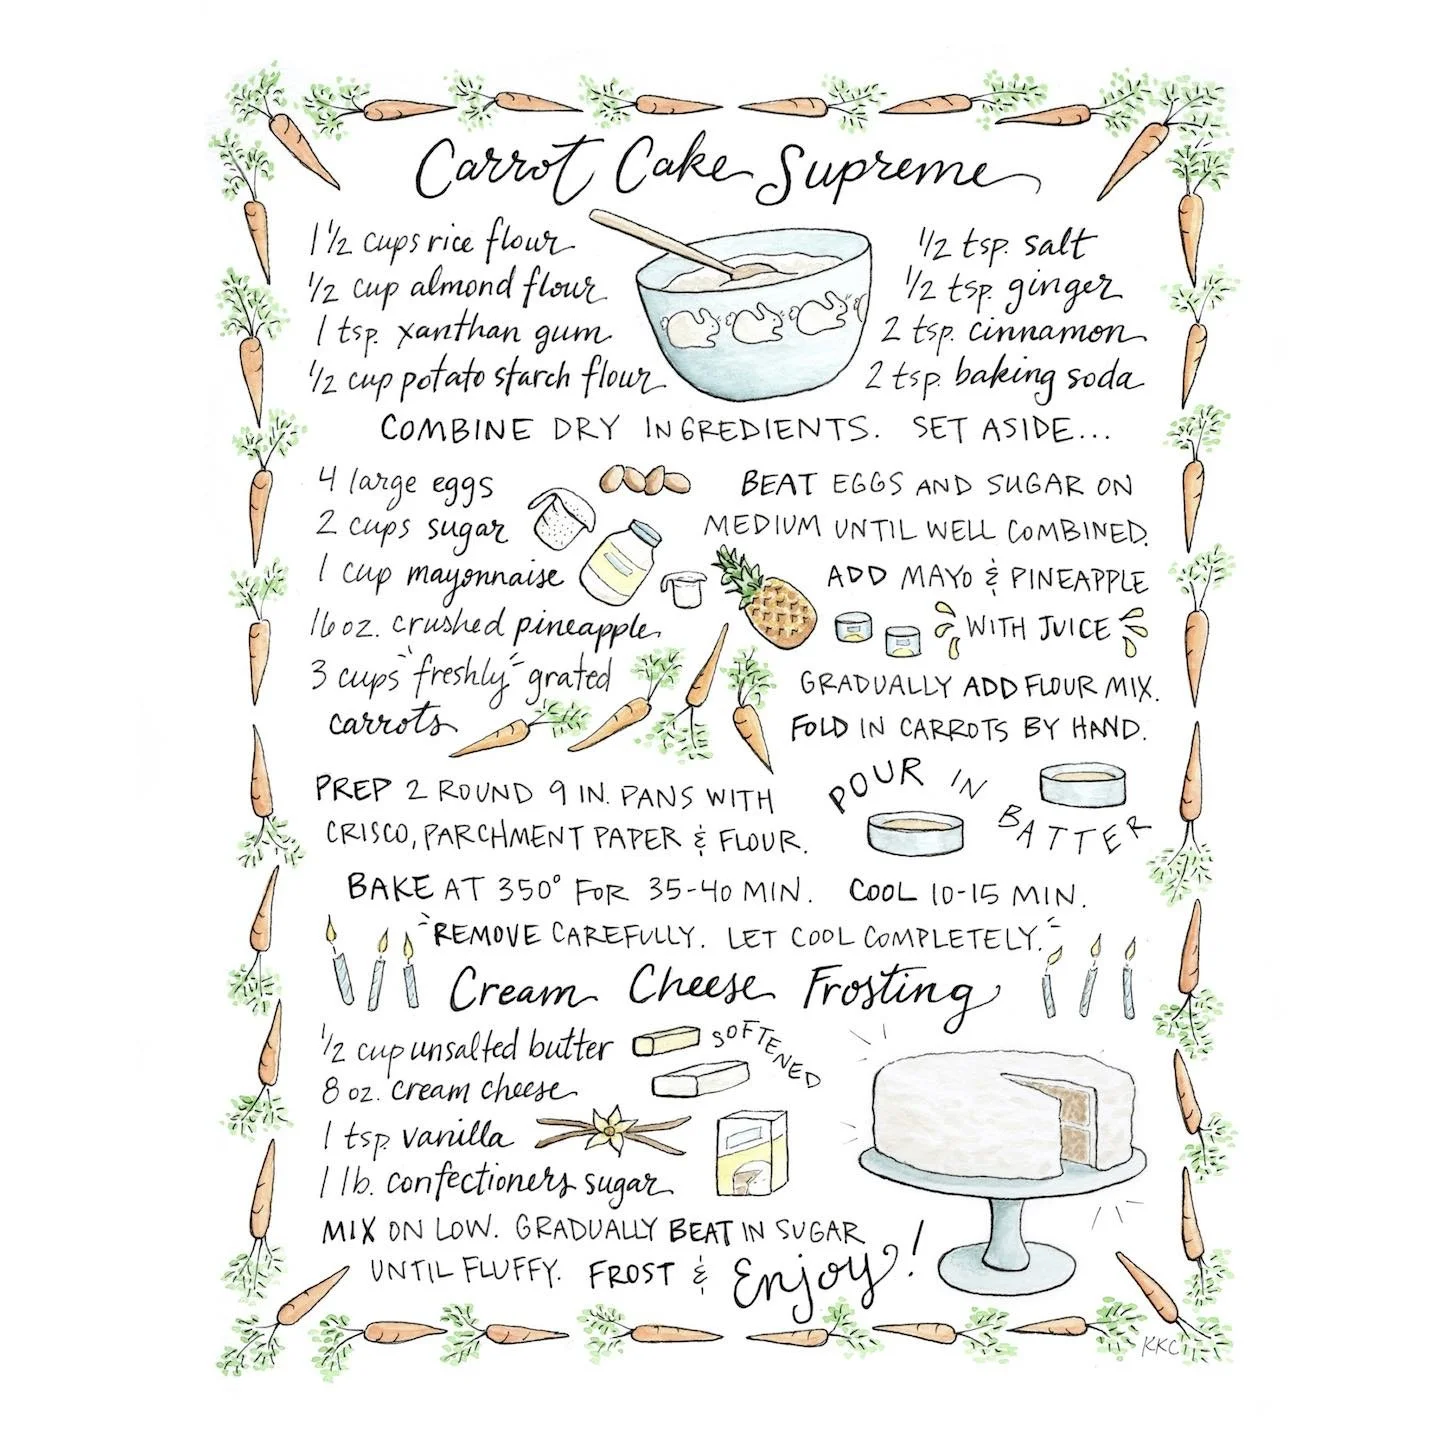 Carrot Cake Supreme
1 1/2 cups rice flour
1/2 cup almond flour
1 tsp. xanthan gum
1/2 cup potato starch flour
1/2 tsp. salt
1/2 tsp. ginger
2 tsp. cinnamon
2 tsp. baking soda
COMBINE DRY INGREDIENTS. SET ASIDE...
4 large eggs
2 cups sugar
1 cup mayonnaise
16 oz. crushed pineapple
3 cups "freshly" grated
carrots
BEAT EGGS AND SUGAR ON
MEDIUM UNTIL WELL COMBINED.
ADD MAYO & PINEAPPLE
WITH JUICE
GRADUALLY ADD FLOUR MIX.
FOLD IN CARROTS BY HAND.
PREP 2 ROUND 9 IN. PANS WITH
CRISCO, PARCHMENT PAPER & FLOUR.
POUR IN
BATTER
BAKE AT 350° FOR 35-40 MIN. COOL 10-15 MIN.
"REMOVE CAREFULLY. LET COOL COMPLETELY."
Cream Cheese Frosting
1/2 cup unsalted butter
8 oz. cream cheese
SOFTENED
1 tsp. vanilla
1 lb. confectioners sugar
MIX ON LOW. GRADUALLY BEAT IN SUGAR
UNTIL FLUFFY. FROST & Enjoy!
KKC